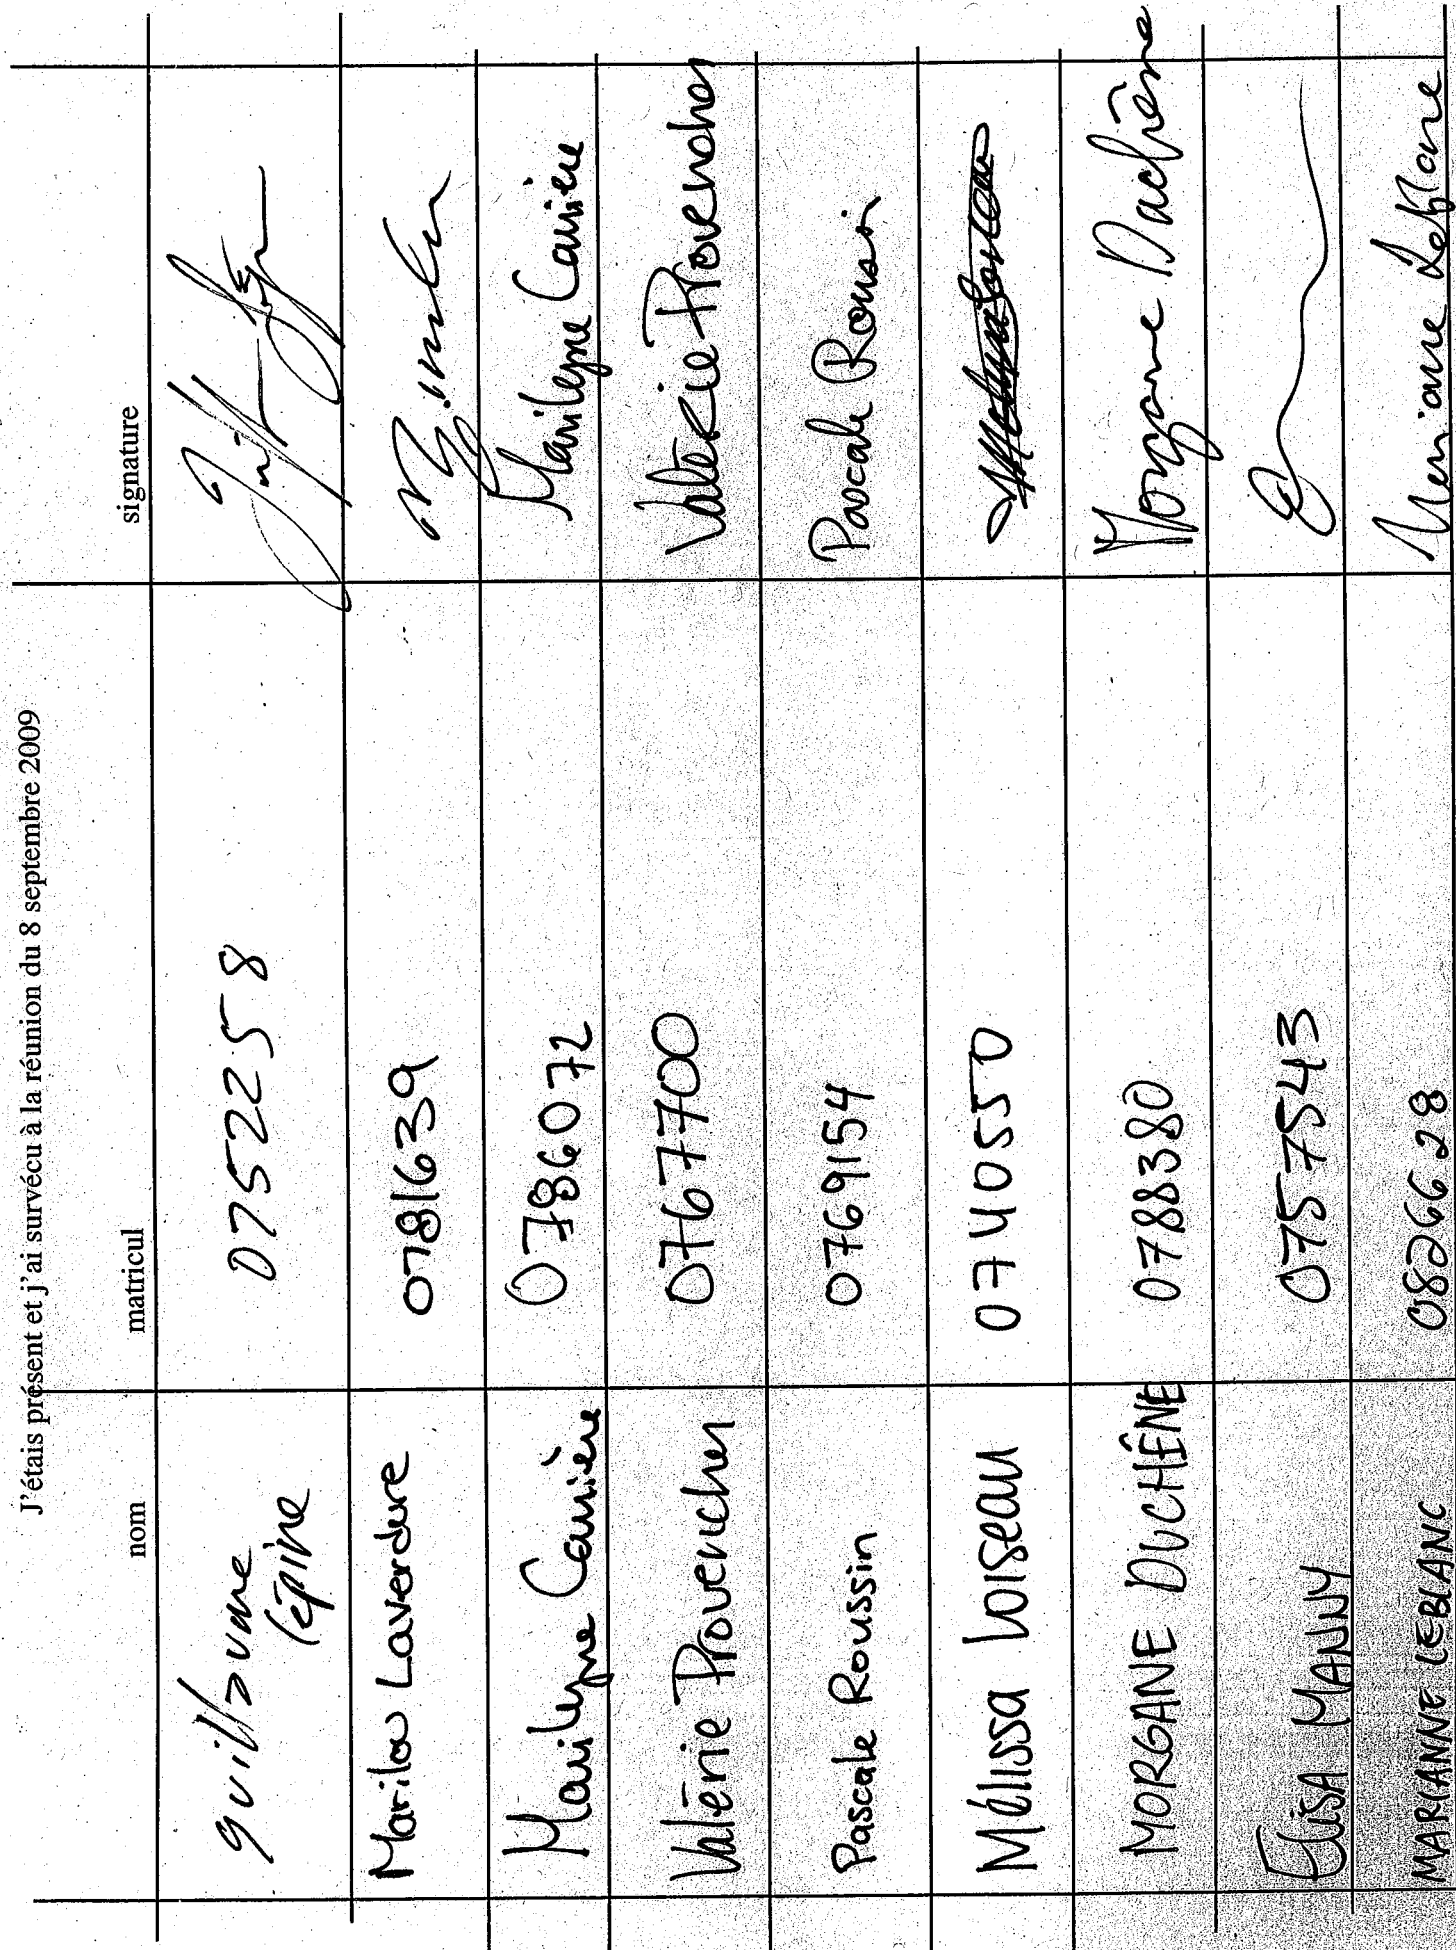 J'étais présent et j'ai survécu à la réunion du 8 septembre 2009
nom matricul signature
guillaume 0752258
lépine
Marilou Laverdure 0781639
Marilyne Carrière 0786072 Marilyne Carrière
Valérie Provencher 0767700 Valérie Provencher
Pascale Roussin 0769154 Pascale Roussin
Mélissa Loiseau 0740550
MORGANE DUCHÊNE 0788380 Morgane Duchêne
Élisa MANNY 0757543
MARIANNE LEBLANC 0826628 Marianne Leblanc